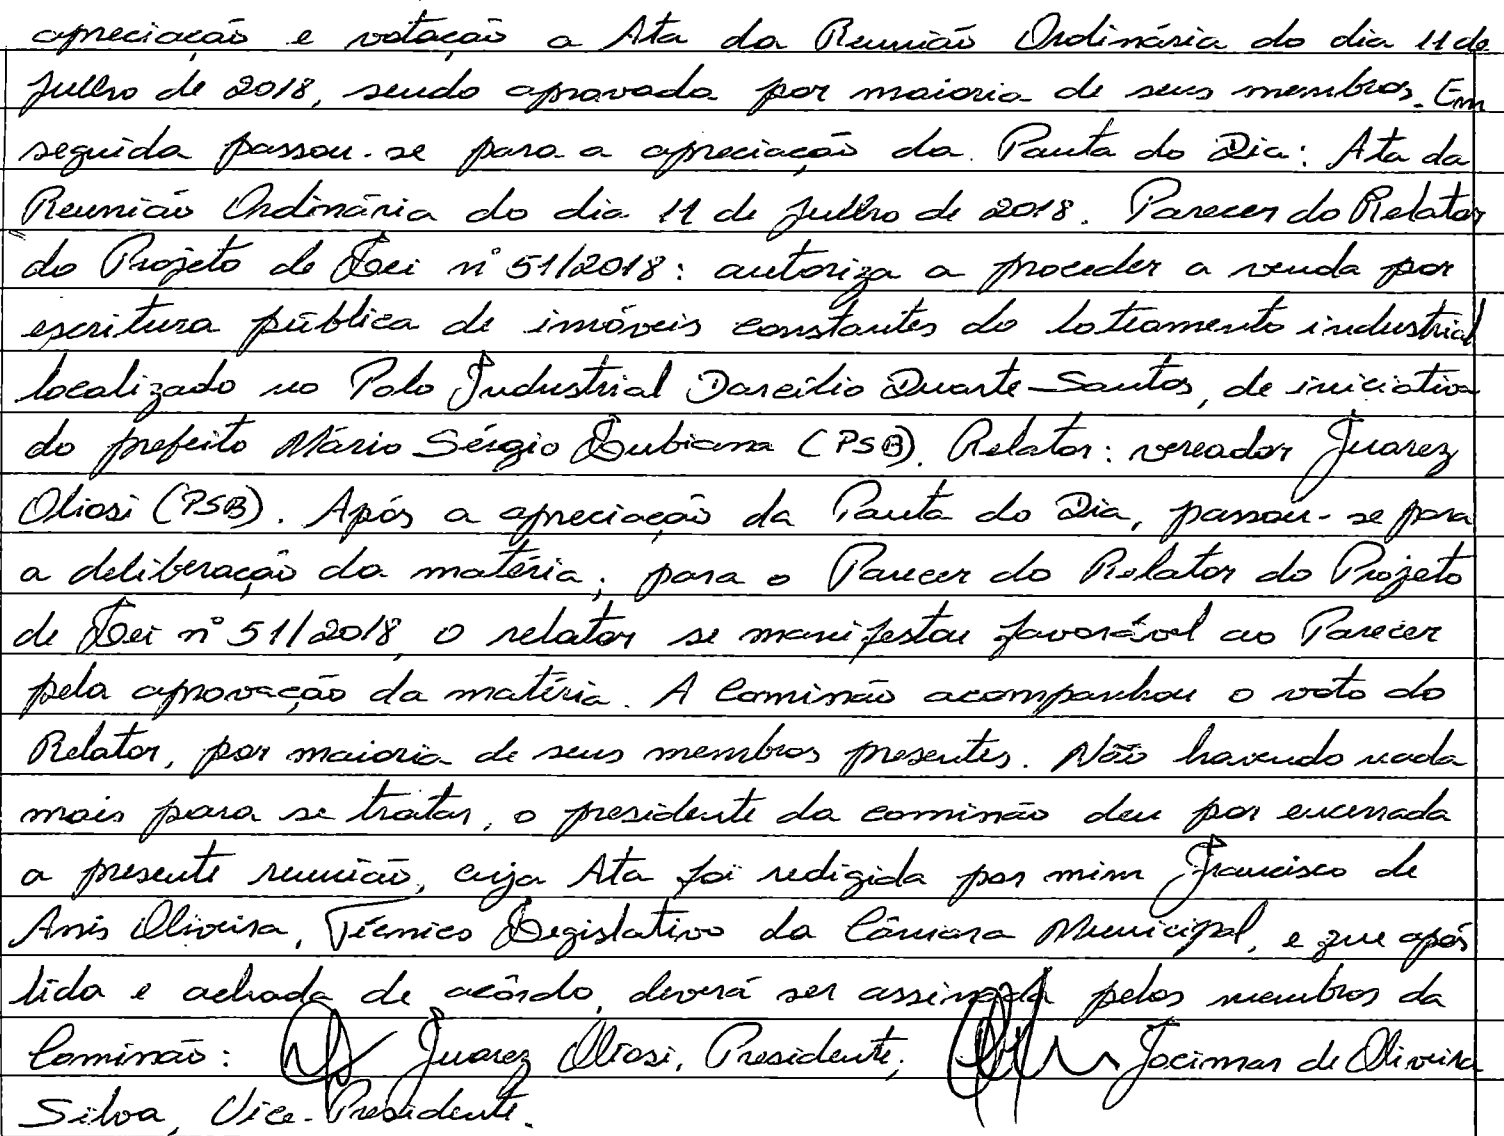 apreciação e votação a Ata da Reunião Ordinária do dia 11 de
Julho de 2018, sendo aprovada por maioria de seus membros. Em
seguida passou-se para a apreciação da Pauta do Dia: Ata da
Reunião Ordinária do dia 11 de Julho de 2018. Parecer do Relator
do Projeto de Lei nº 51/2018: autoriza a proceder a venda por
escritura pública de imóveis constantes do loteamento industrial
localizado no Polo Industrial Darcílio Duarte Santos, de iniciativa
do prefeito Mário Sérgio Lubiana (PSB). Relator: vereador Juarez
Oliosi (PSB). Após a apreciação da Pauta do Dia, passou-se para
a deliberação da matéria; para o Parecer do Relator do Projeto
de Lei nº 51/2018, o relator se manifestou favorável ao Parecer
pela aprovação da matéria. A Comissão acompanhou o voto do
Relator, por maioria de seus membros presentes. Não havendo nada
mais para se tratar, o presidente da comissão deu por encerrada
a presente reunião, cuja Ata foi redigida por mim Francisco de
Assis Oliveira, Técnico Legislativo da Câmara Municipal, e que após
lida e achada de acôrdo, deverá ser assinada pelos membros da
Comissão: Juarez Oliosi, Presidente; Jocimar de Oliveira
Silva, Vice-Presidente.